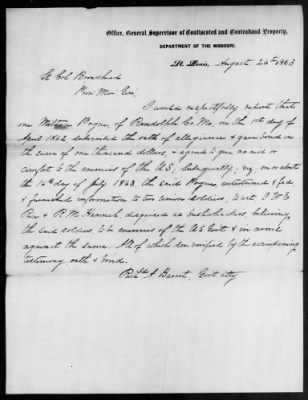 Office, General Supervisor of Confiscated and Contraband Property,
DEPARTMENT OF THE MISSOURI.
St. Louis, August 24th 1863
Lt Col Broadhead
Pro Mar Gen,
I would respectfully report that
one Pogue of Randolph Co Mo, on the 1st day of
April 1862 subscribed the oath of allegiance & gave bond in
the sum of one thousand dollars, & agreed to give no aid or
comfort to the enemies of the US; Subsequently, viz, on or about
the 16th day of July 1863, the said Pogue, entertained & fed
& furnished information to two union soldiers, to wit,
& R. M. Hannah disguised as bushwhackers, believing
the said soldiers, to be enemies of the US Govt & in arms
against the same. All of which are verified by the accompanying
testimony, oath & bond.
A Barret, Govt atty